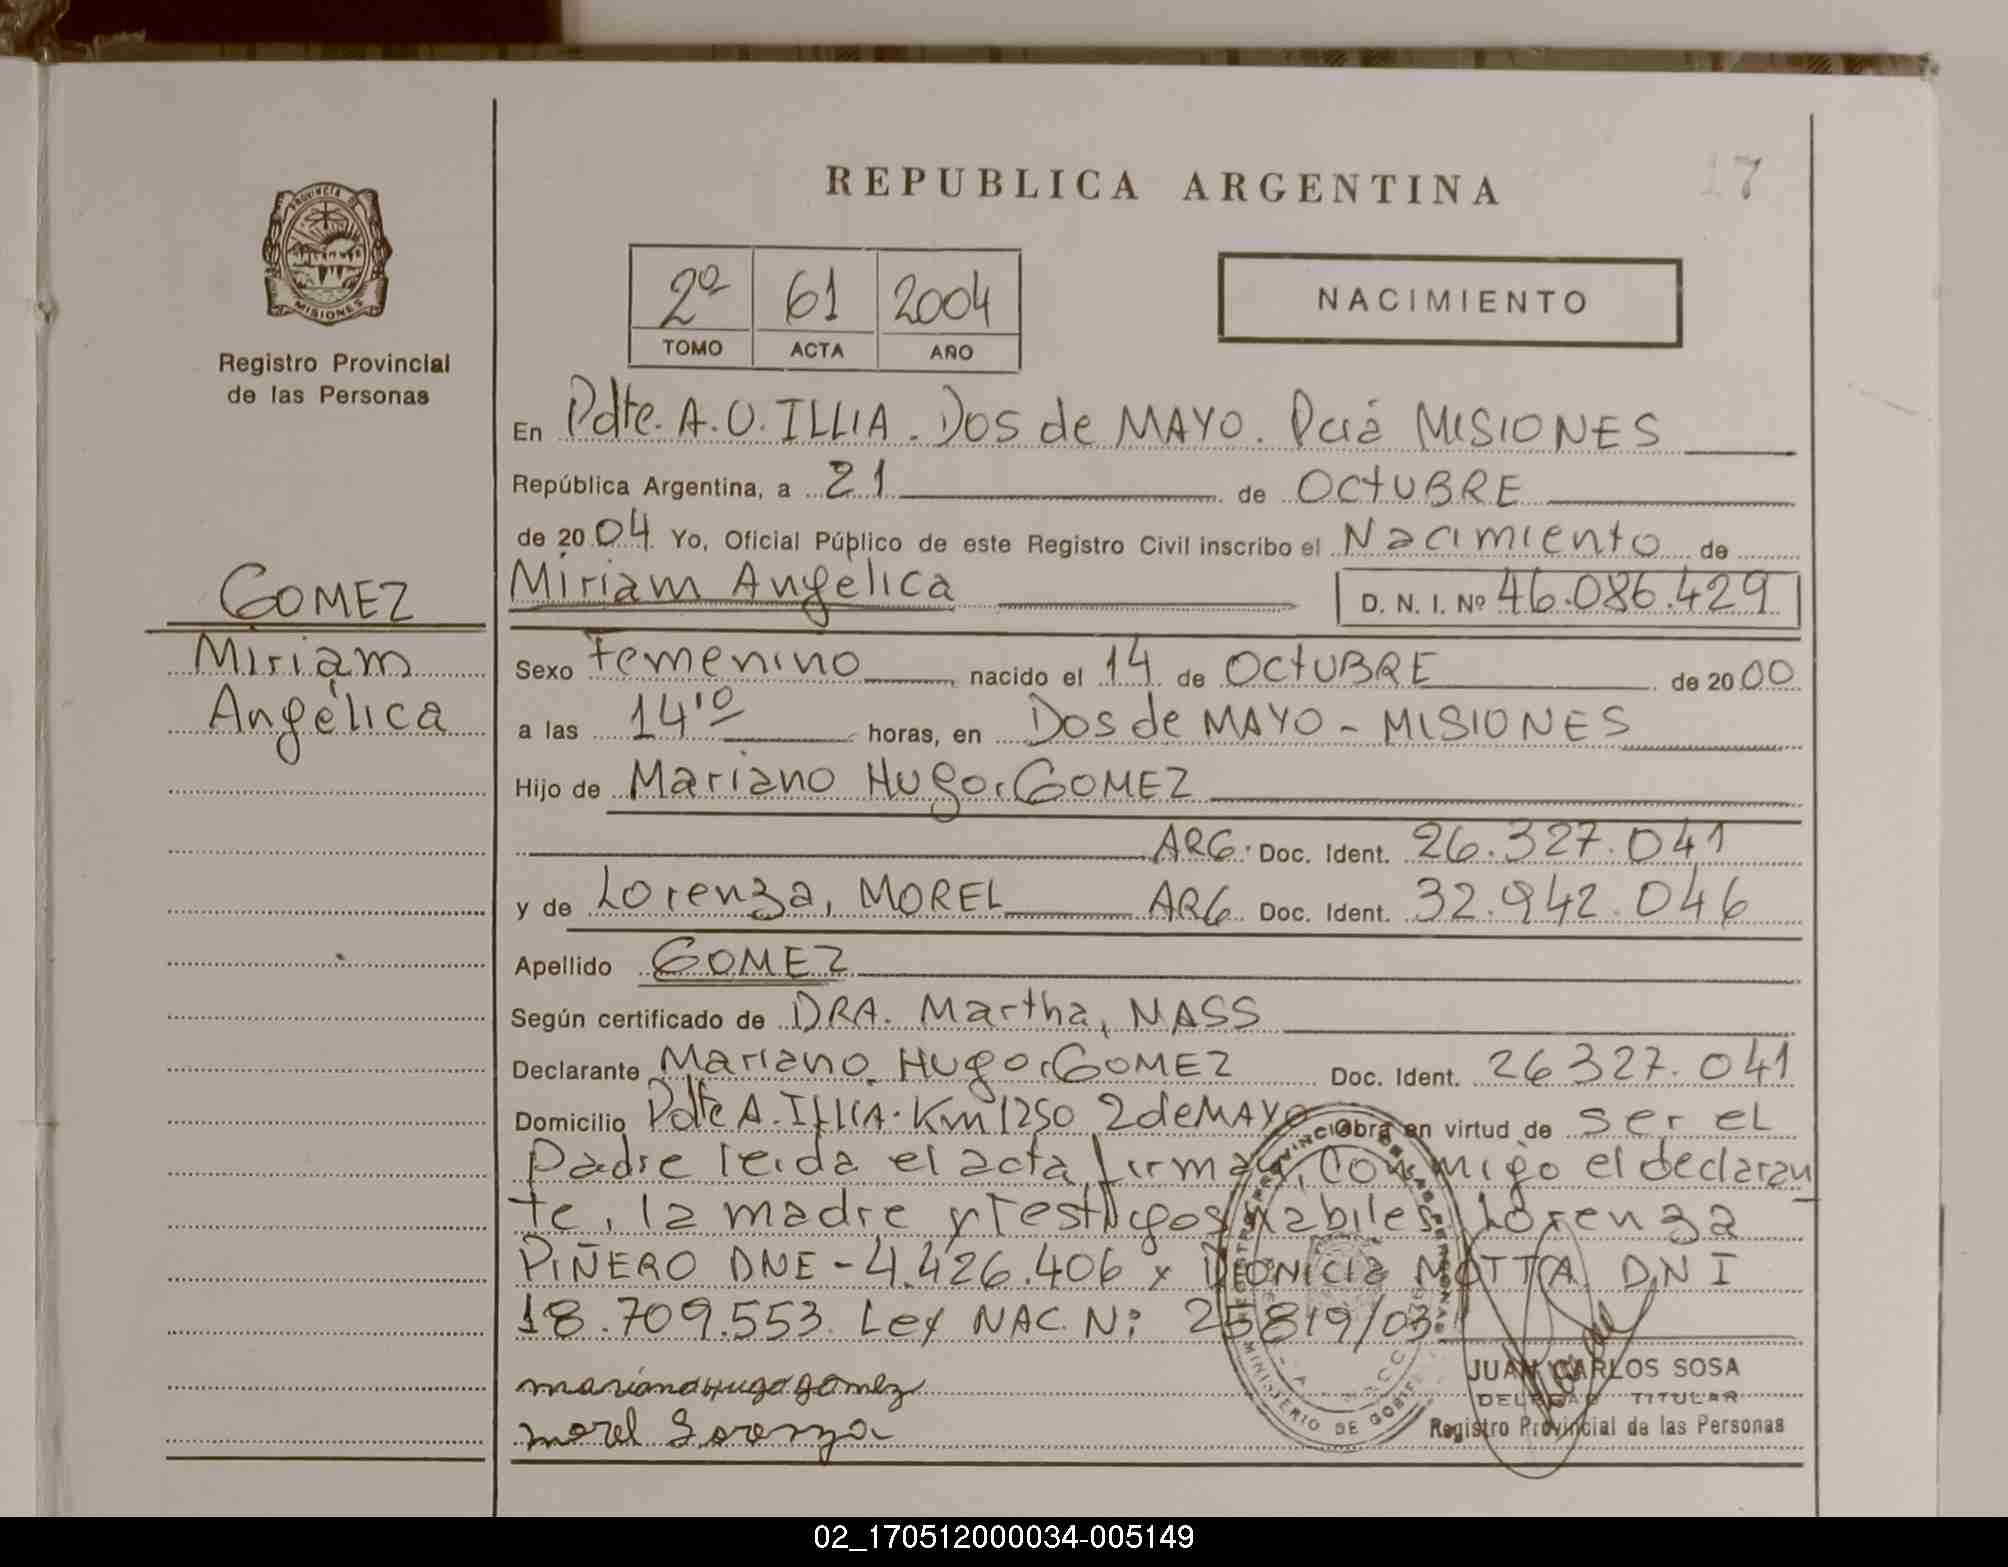 17
REPUBLICA ARGENTINA
PROVINCIA DE
MISIONES
Registro Provincial
de las Personas
2º 61 2004
TOMO ACTA AÑO
NACIMIENTO
En Pdte. A.U. ILLIA. Dos de MAYO. Pciá MISIONES
República Argentina, a 21 de OCTUBRE
de 2004 Yo, Oficial Público de este Registro Civil inscribo el Nacimiento de
Miriam Angélica D. N. I. Nº 46.086.429
GOMEZ
Miriam
Angélica
Sexo Femenino nacido el 14 de OCTUBRE de 2000
a las 14'10 horas, en Dos de MAYO - MISIONES
Hijo de Mariano Hugo, GOMEZ
ARG. Doc. Ident. 26.327.041
y de Lorenza, MOREL ARG. Doc. Ident. 32.942.046
Apellido GOMEZ
Según certificado de DRA. Martha, NASS
Declarante Mariano Hugo, GOMEZ Doc. Ident. 26327.041
Domicilio Pdte A. ILLIA. Km 1250 2 de MAYO Obra en virtud de ser el
Padre leida el acta, firman conmigo el declaran
te, la madre y Testigos habiles Lorenza
PIÑERO DNE - 4.426.406 y Dionicia MOTTA DNI
18.709.553. Ley NAC. N: 25819/03
mariano Hugo gomez
morel Lorenza
JUAN CARLOS SOSA
DELEGADO TITULAR
Registro Provincial de las Personas
MINISTERIO DE GOBIERNO
02_170512000034-005149